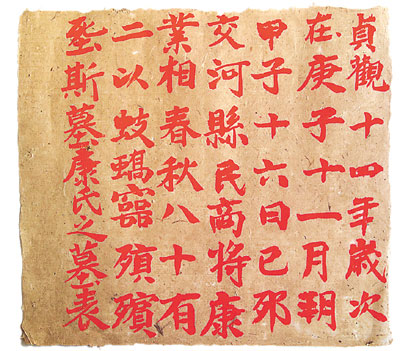 貞觀十四年歲次
在庚子十一月朔
甲子十六日己卯
交河縣民商將康
業相春秋八十有
二以蚑蝺殞殯
斯墓康氏之墓表